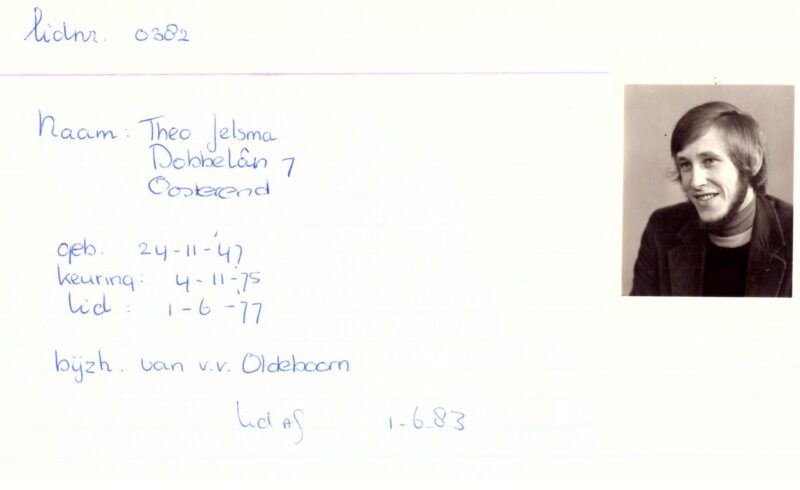 lidnr. 0382
Naam: Theo Jelsma
Dobbelân 7
Oosterend
geb. 24-11-'47
keuring: 4-11-'75
lid: 1-6-'77
bijzh. van v.v. Oldeboorn
lid af 1-6-83